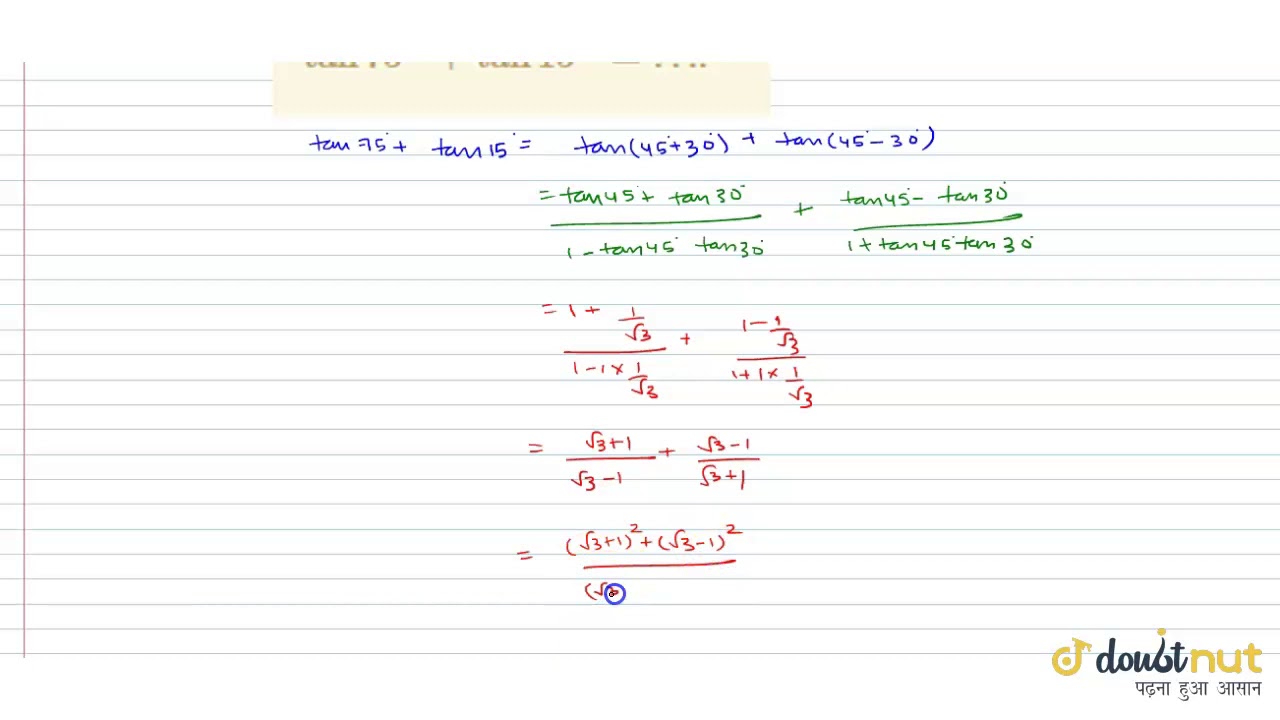 tan 75° + tan 15° = tan(45°+30°) + tan(45°-30°)
= tan45°+ tan 30° + tan45°- tan30°
1 - tan45° tan30° 1 + tan45° tan 30°
= 1 + 1/√3 + 1 - 1/√3
1 - 1 × 1/√3 1 + 1 × 1/√3
= √3+1 + √3-1
√3-1 √3+1
= (√3+1)² + (√3-1)²
(√3
doubtnut
पढ़ना हुआ आसान